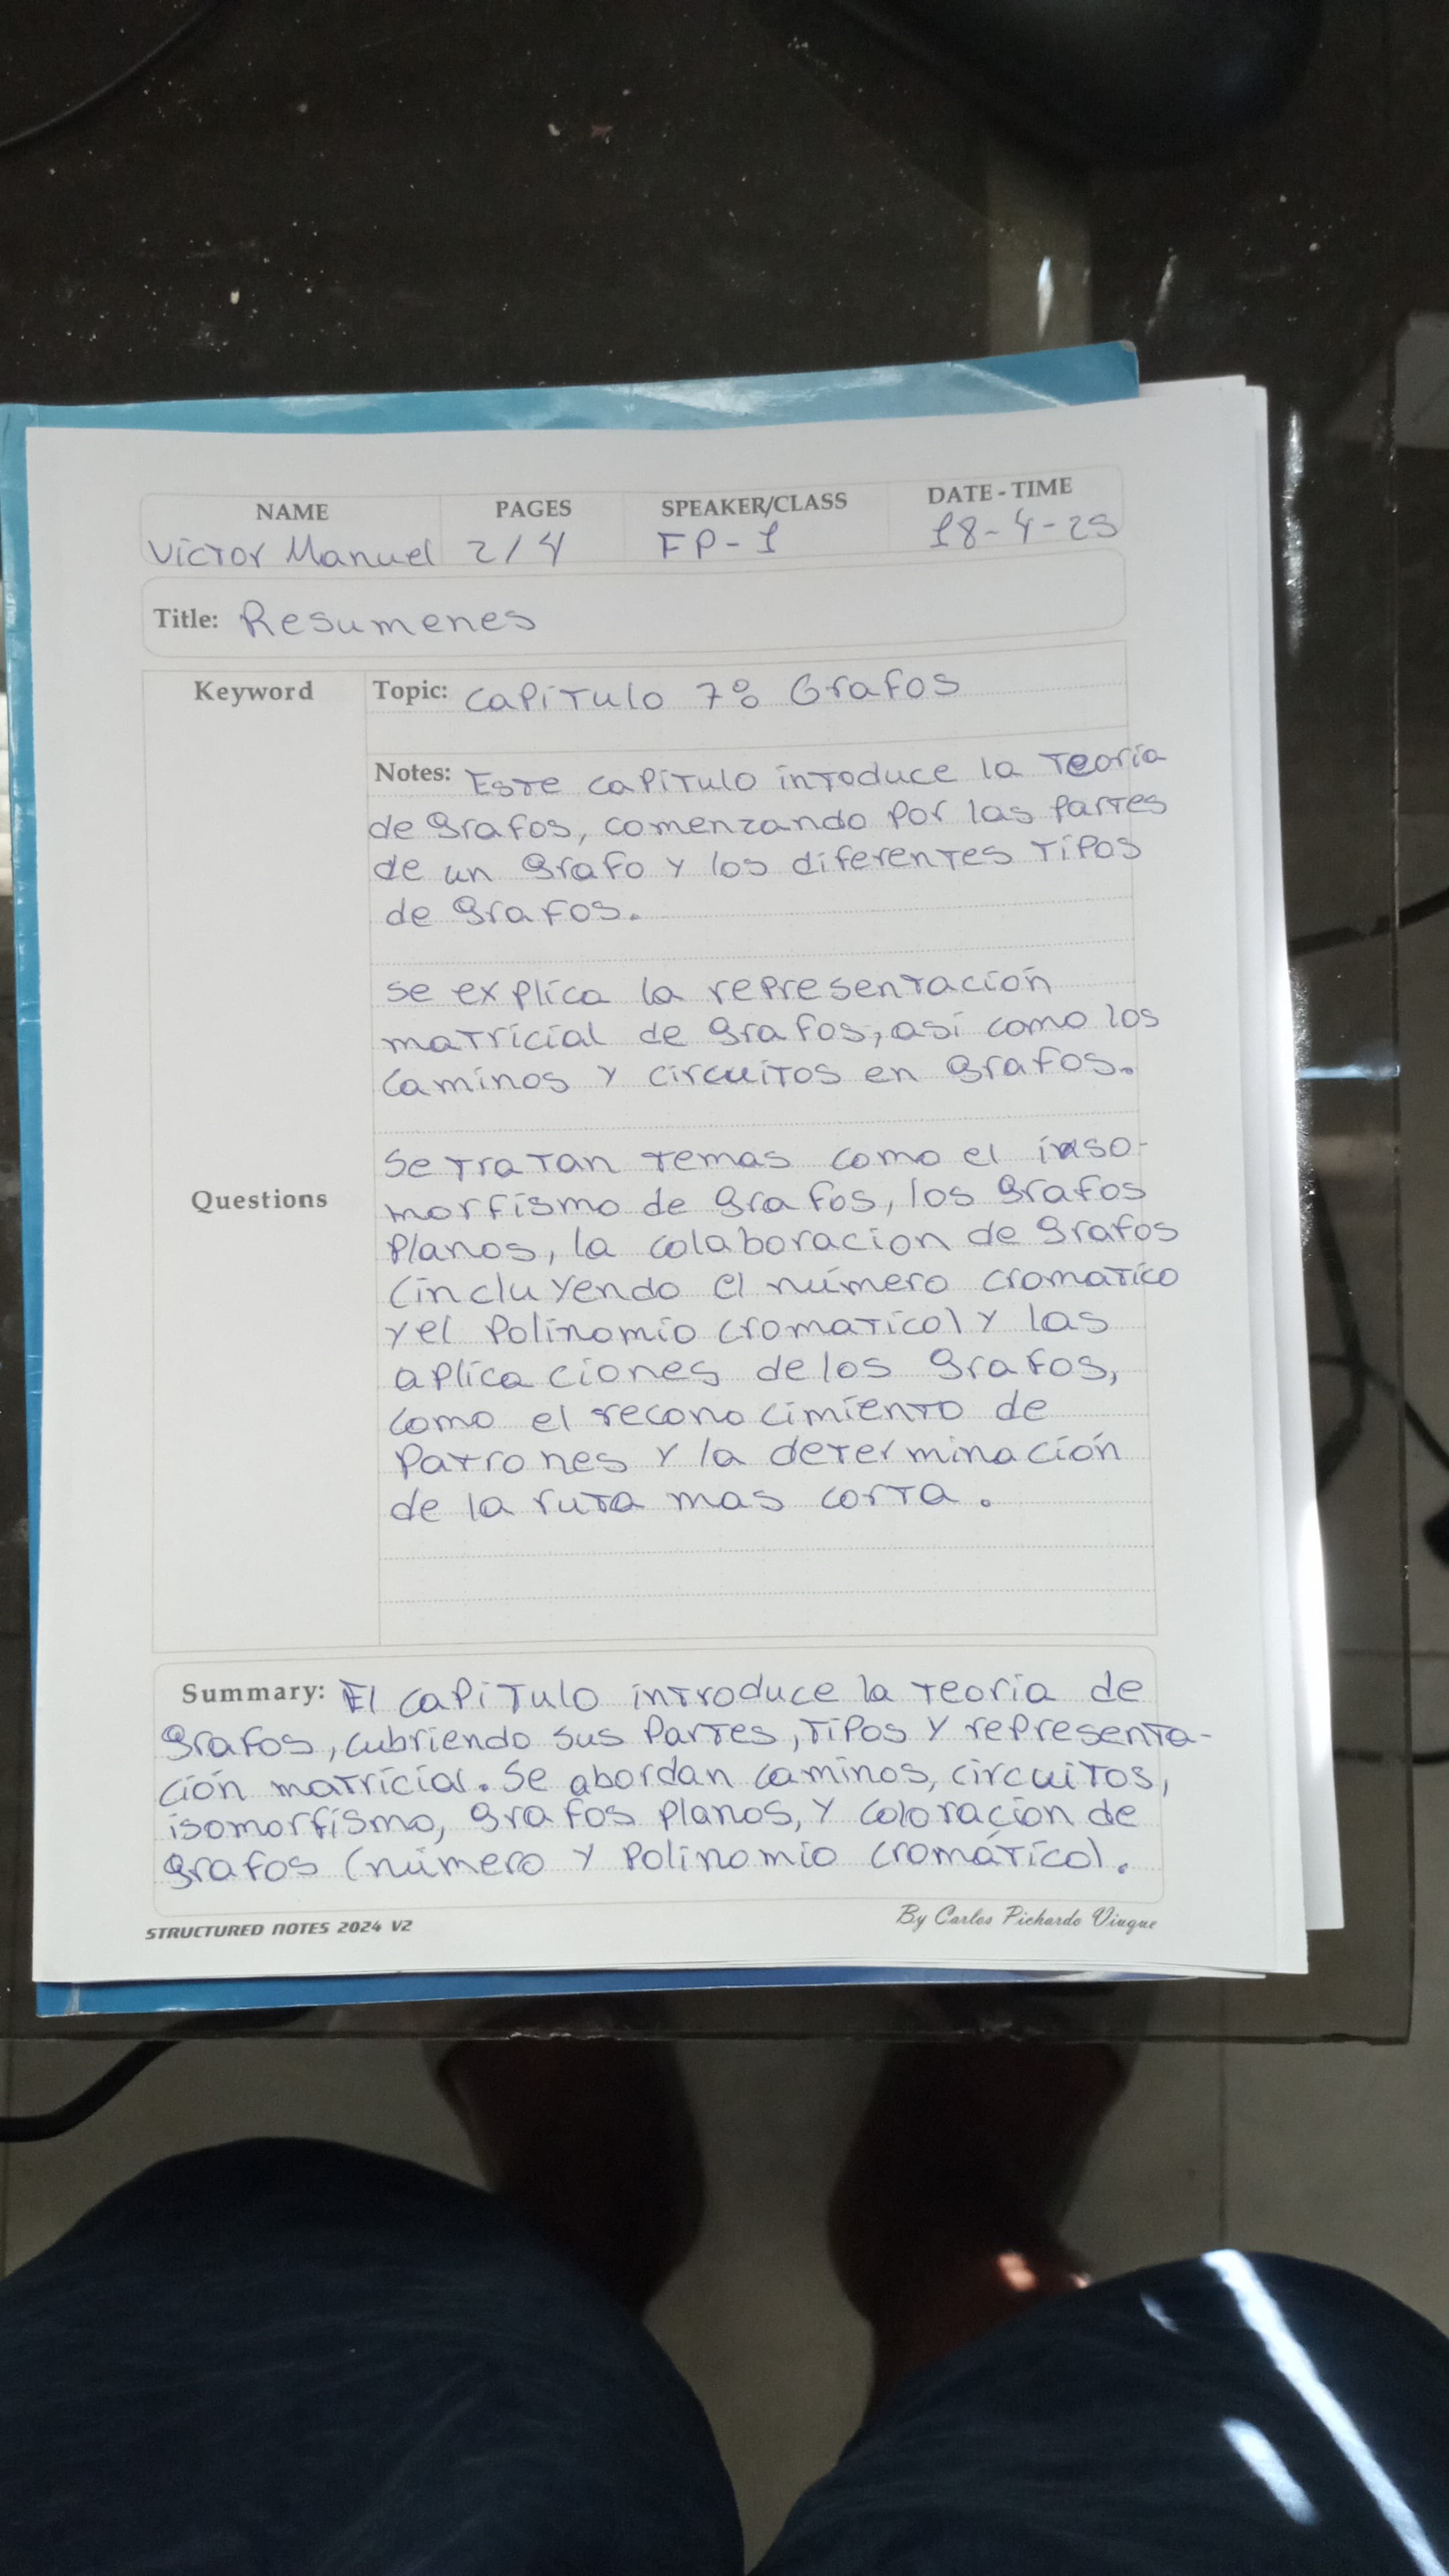 NAME PAGES SPEAKER/CLASS DATE-TIME
Victor Manuel 2/4 FP-1 18-4-25
Title: Resumenes
Keyword
Topic: Capitulo 7: Grafos
Notes: Este capitulo intoduce la Teoría
de grafos, comenzando por las partes
de un grafo y los diferentes tipos
de grafos.
se explica la representación
matricial de grafos, así como los
caminos y circuitos en grafos.
Se tratan temas como el inso-
morfismo de grafos, los grafos
Planos, la colaboracion de grafos
(incluyendo el número cromatico
y el Polinomio cromatico) y las
aplicaciones de los grafos,
como el reconocimiento de
Patrones y la determinación
de la ruta mas corta.
Questions
Summary: El capitulo introduce la teoria de
grafos, cubriendo sus Partes, Tipos y representa-
ción matricial. Se abordan caminos, circuitos,
isomorfismo, grafos planos, y coloracion de
grafos (número y Polinomio cromático).
STRUCTURED NOTES 2024 V2
By Carlos Pichardo Viuque